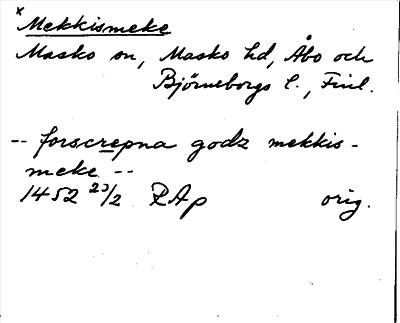 x Mekkismeke
Masko sn, Masko hd, Åbo och
Björneborgs l., Finl.
-- forscrepna godz mekkis-
meke --
1452 23/2 RAp orig.